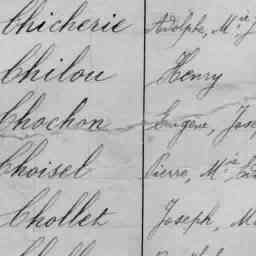 Chicherie Adolphe, Mie
Chilou Henry
Chochon Eugène, Jose
Choisel Pierre, Mie
Chollet Joseph, M